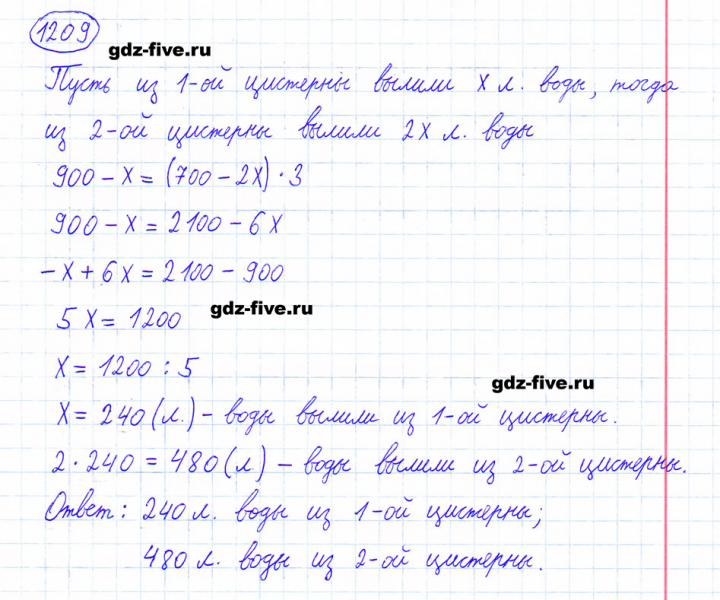 1209
gdz-five.ru
Пусть из 1-ой цистерны вылили x л. воды, тогда
из 2-ой цистерны вылили 2x л. воды
900 - x = (700 - 2x) · 3
900 - x = 2100 - 6x
-x + 6x = 2100 - 900
5x = 1200
gdz-five.ru
x = 1200 : 5
gdz-five.ru
x = 240 (л.) - воды вылили из 1-ой цистерны.
2 · 240 = 480 (л) - воды вылили из 2-ой цистерны.
Ответ: 240 л. воды из 1-ой цистерны;
480 л. воды из 2-ой цистерны.